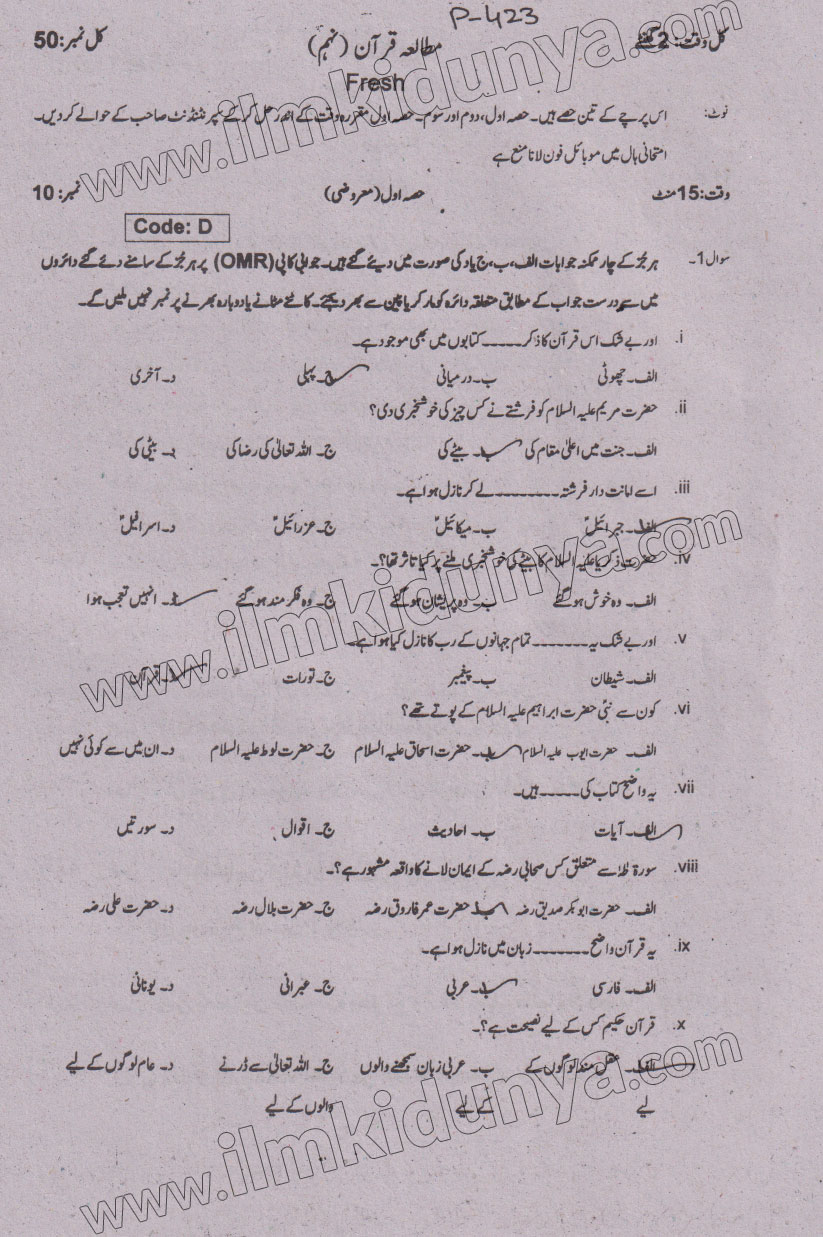 P-423
کل وقت: 2 گھنٹے مطالعہ قرآن (نہم) کل نمبر: 50
Fresh
نوٹ: اس پرچے کے تین حصے ہیں۔ حصہ اول، دوم اور سوم۔ حصہ اول مقررہ وقت کے اندر حل کر کے سپرنٹنڈنٹ صاحب کے حوالے کر دیں۔
امتحانی ہال میں موبائل فون لانا منع ہے
وقت: 15 منٹ حصہ اول (معروضی) نمبر: 10
Code: D
سوال 1۔ ہر جُز کے چار ممکنہ جوابات الف، ب، ج یا د کی صورت میں دیئے گئے ہیں۔ جوابی کاپی (OMR) پر ہر جُز کے سامنے دئے گئے دائروں
میں سے درست جواب کے مطابق متعلقہ دائرہ کو مارکر یا پین سے بھر دیجئے۔ کاٹنے مٹانے یا دوبارہ بھرنے پر نمبر نہیں ملیں گے۔
i. اور بے شک اس قرآن کا ذکر ۔۔۔۔۔ کتابوں میں بھی موجود ہے۔
الف۔ چھوٹی ب۔ درمیانی ج۔ پہلی د۔ آخری
ii. حضرت مریم علیہ السلام کو فرشتے نے کس چیز کی خوشخبری دی؟
الف۔ جنت میں اعلیٰ مقام کی ب۔ بیٹے کی ج۔ اللہ تعالیٰ کی رضا کی د۔ بیٹی کی
iii. اسے امانت دار فرشتہ ۔۔۔۔۔۔۔۔ لے کر نازل ہوا ہے۔
الف۔ جبرائیلؑ ب۔ میکائیلؑ ج۔ عزرائیلؑ د۔ اسرافیلؑ
iv. حضرت زکریا علیہ السلام کا بیٹے کی خوشخبری ملنے پر کیا تاثر تھا؟۔
الف۔ وہ خوش ہو گئے ب۔ وہ پریشان ہو گئے ج۔ وہ فکر مند ہو گئے د۔ انہیں تعجب ہوا
v. اور بے شک یہ ۔۔۔۔۔۔۔ تمام جہانوں کے رب کا نازل کیا ہوا ہے۔
الف۔ شیطان ب۔ پیغمبر ج۔ تورات د۔ قرآن
vi. کون سے نبیؑ حضرت ابراہیم علیہ السلام کے پوتے تھے؟
الف۔ حضرت ایوب علیہ السلام ب۔ حضرت اسحاق علیہ السلام ج۔ حضرت لوط علیہ السلام د۔ ان میں سے کوئی نہیں
vii. یہ واضح کتاب کی ۔۔۔۔۔ ہیں۔
الف۔ آیات ب۔ احادیث ج۔ اقوال د۔ سورتیں
viii. سورۃ طٰہٰ سے متعلق کس صحابی رضہ کے ایمان لانے کا واقعہ مشہور ہے؟۔
الف۔ حضرت ابوبکر صدیق رضہ ب۔ حضرت عمر فاروق رضہ ج۔ حضرت بلال رضہ د۔ حضرت علی رضہ
ix. یہ قرآن واضح ۔۔۔۔۔۔۔ زبان میں نازل ہوا ہے۔
الف۔ فارسی ب۔ عربی ج۔ عبرانی د۔ یونانی
x. قرآن حکیم کس کے لیے نصیحت ہے؟۔
الف۔ عقل مند لوگوں کے ب۔ عربی زبان سمجھنے والوں ج۔ اللہ تعالیٰ سے ڈرنے د۔ عام لوگوں کے لیے
لیے کے لیے والوں کے لیے
www.ilmkidunya.com
www.ilmkidunya.com
www.ilmkidunya.com